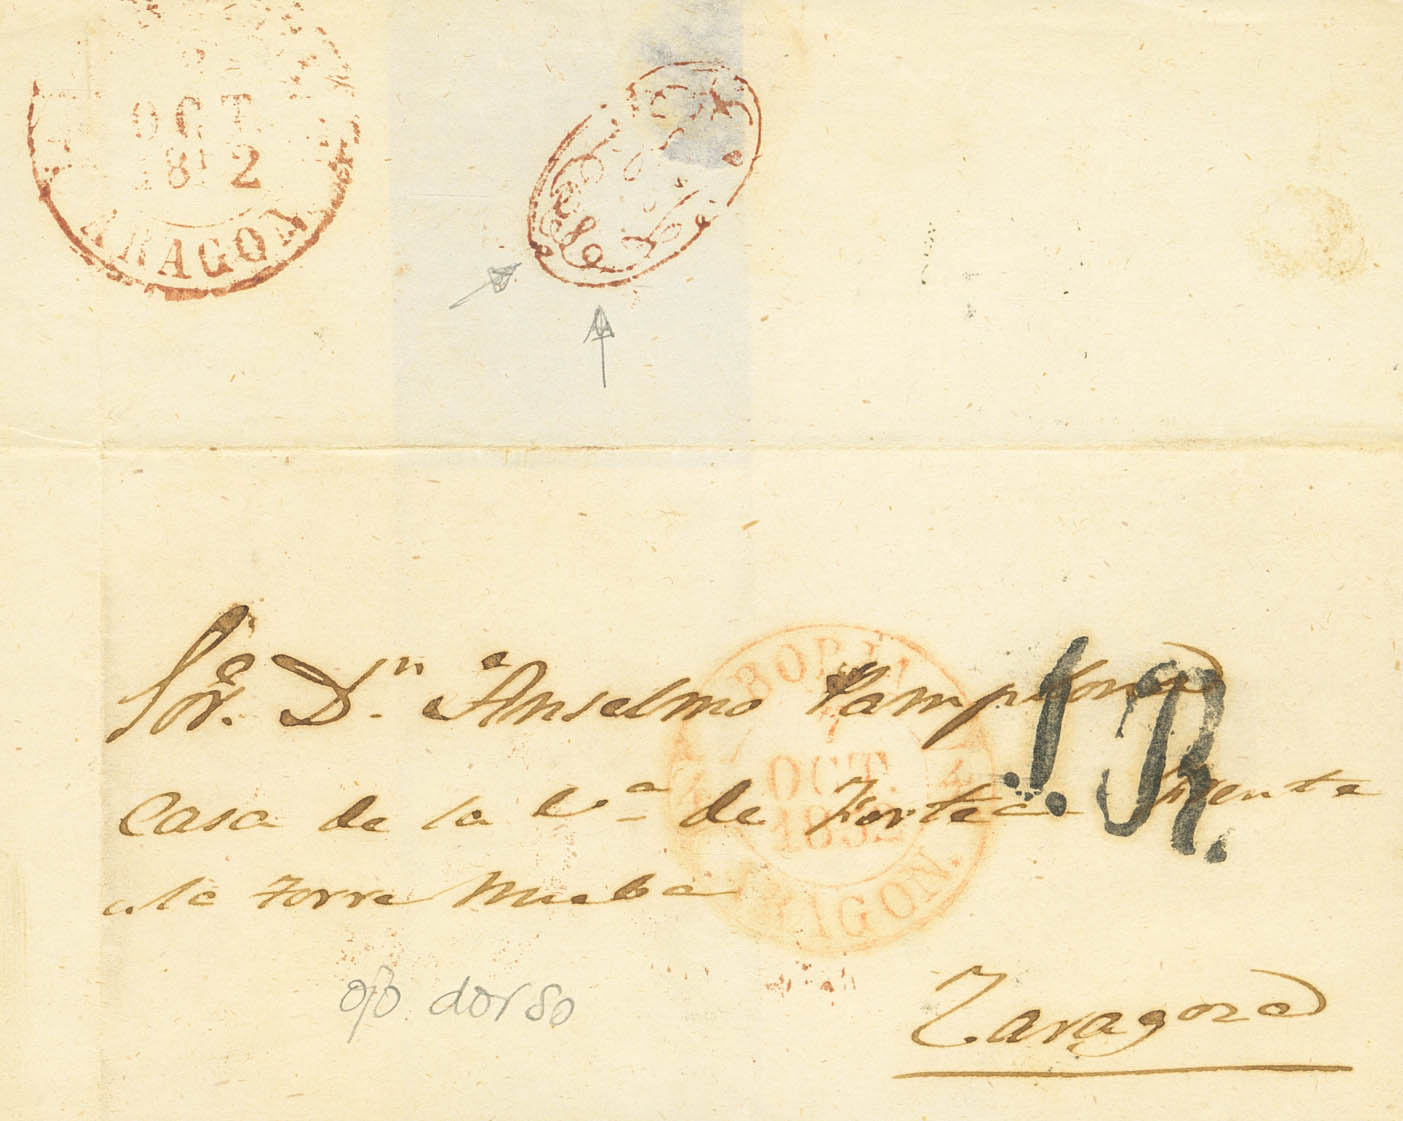 OCT.
18 2
ARAGON
Sor. Dn. Anselmo Pamplona
ALBORJA
7
OCT.
1852
ARAGON.
1R.
Casa de la Va de Forteca frente
a la torre Nueba
ojo dorso
Zaragoza